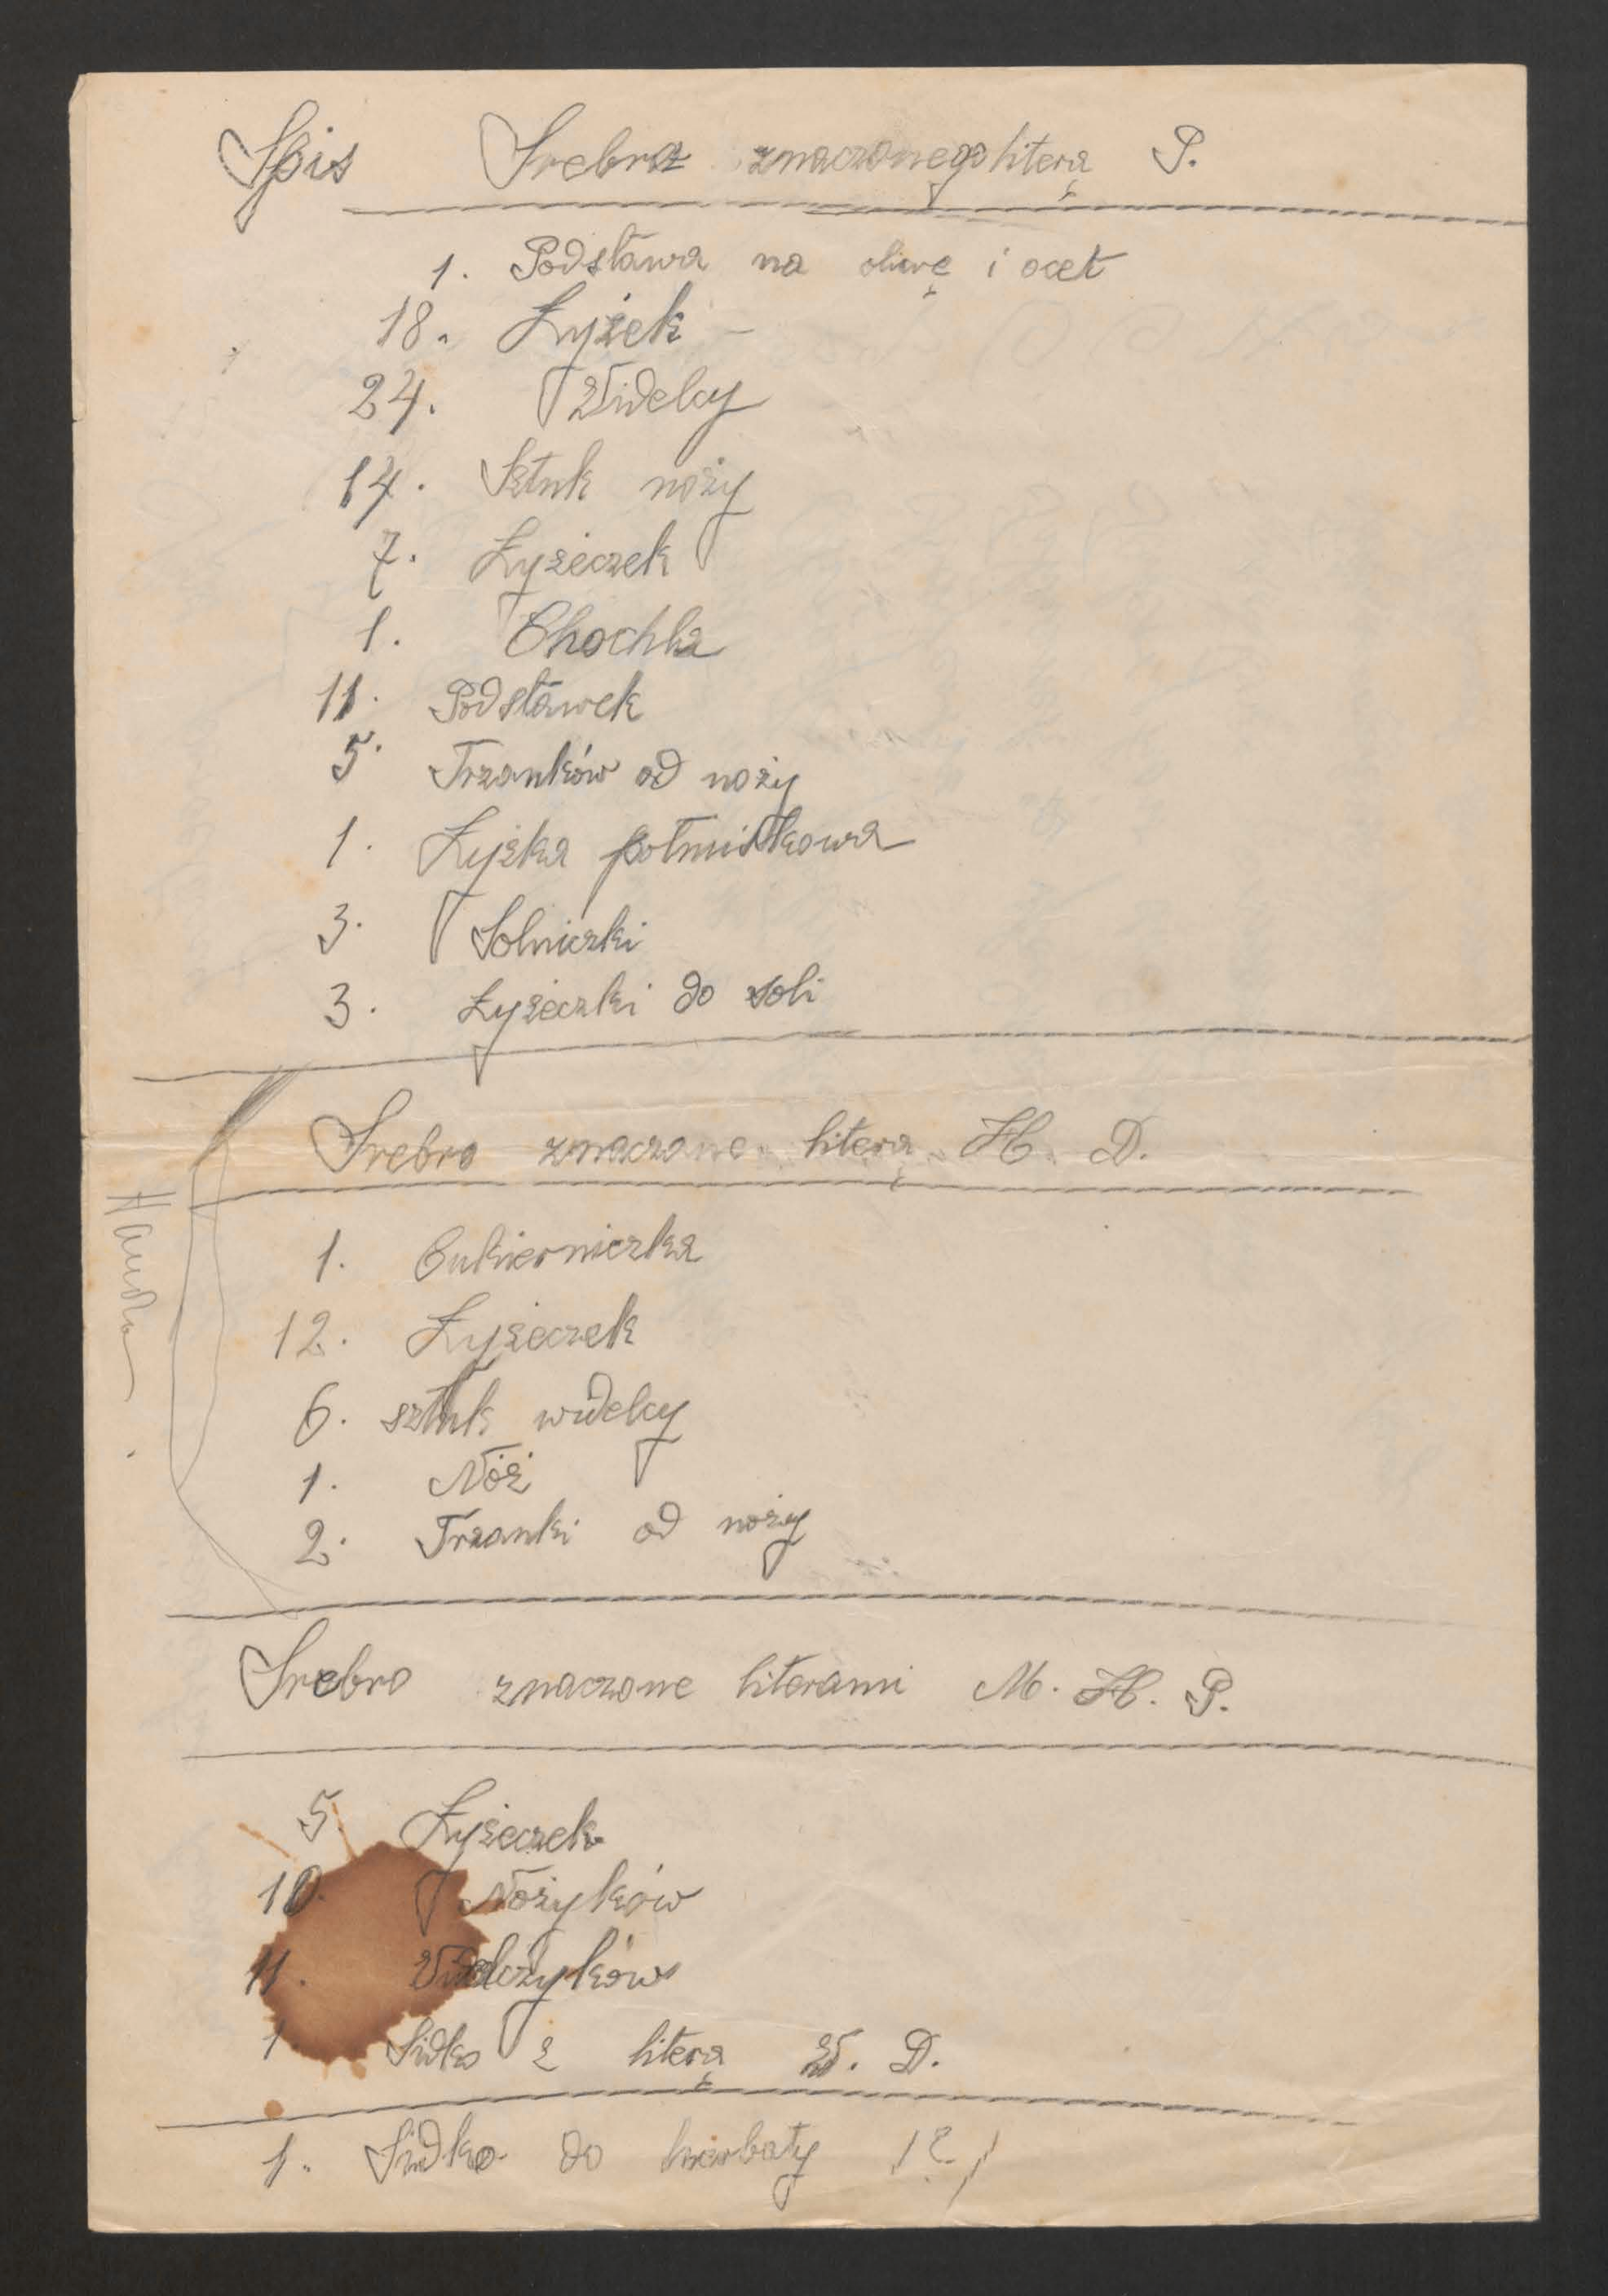 Spis Srebra znaczonego literą P.
1. Podstawa na oliwę i ocet
18. Łyżek –
24. Widelcy
14. Sztuk noży
7. Łyżeczek
1. Chochla
11. Podstawek
5. Trzonków od noży
1. Łyżka półmiskowa
3. Solniczki
3. Łyżeczki do soli
Srebro znaczone literą H. D.
1. Cukierniczka
12. Łyżeczek
6. sztuk widelcy
1. Nóż
2. Trzonki od noży
Srebro znaczone literami M. H. P.
5. Łyżeczek
10. Nożyków
11. Widelczyków
1. Sidko z literą W. D.
1. Sidko do herbaty (?)